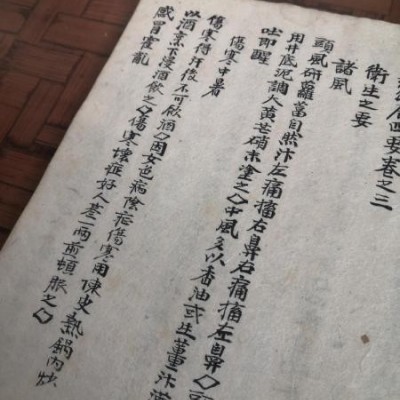 要卷之三
衛生之要
諸風
頭風研蘿蔔自然汁左痛搐右鼻右痛搐左鼻
用井底泥調大黃芒硝末塗之〇中風多以香油或生薑汁灌
吐即醒
傷寒中暑
傷寒得汗後不可飲酒〇因女色病陰症傷寒用陳史熱鍋內炒
以酒烹下漫酒飲之〇傷寒壞症好人參一兩煎頓服之〇
感冒霍亂